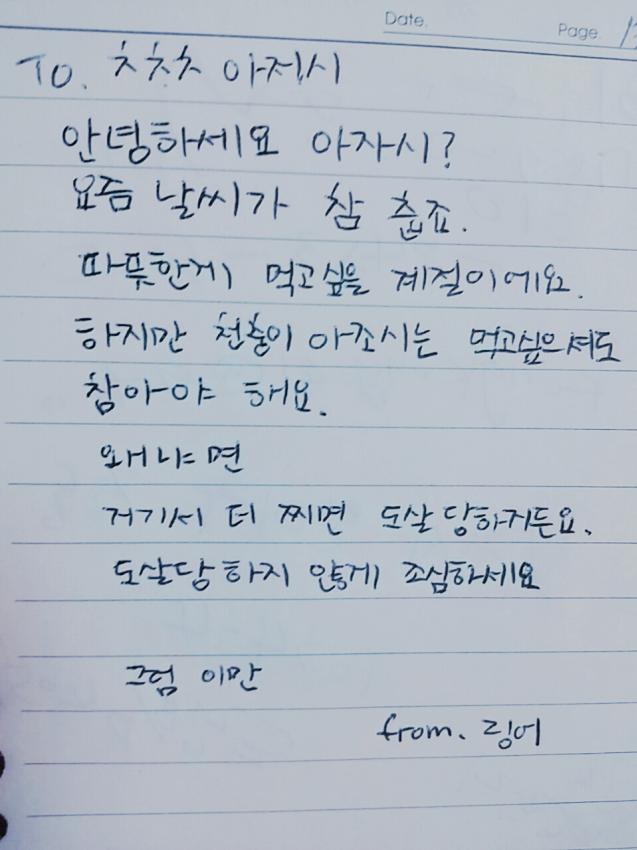 Date.
Page.
To. 츠츠츠 아저시
안녕하세요 아자시?
요즘 날씨가 참 춥죠.
따뜻한게 먹고싶을 계절이에요.
하지만 천충이 아조시는 먹고싶으셔도
참아야 해요.
왜냐면
거기서 더 찌면 도살당하거든요.
도살당하지 않게 조심하세요
그럼 이만
from. 링어